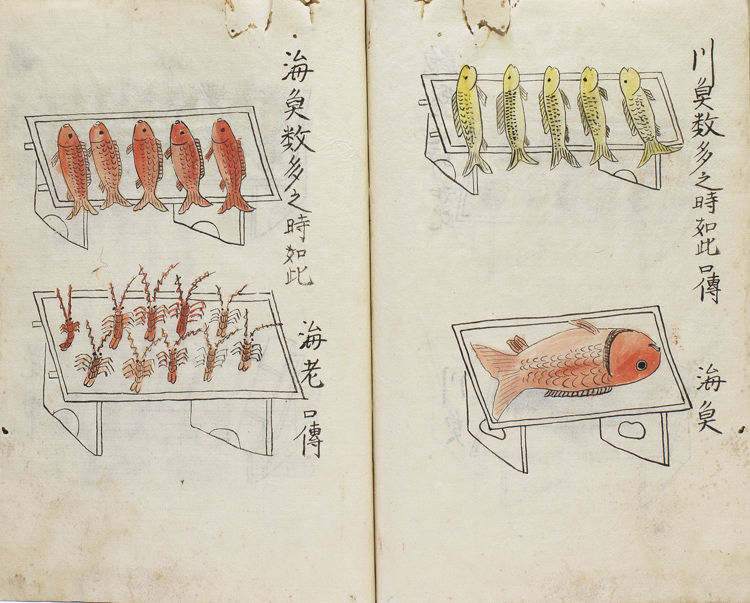 川魚数多之時如此口傳
海魚
海魚数多之時如此
海老 口傳